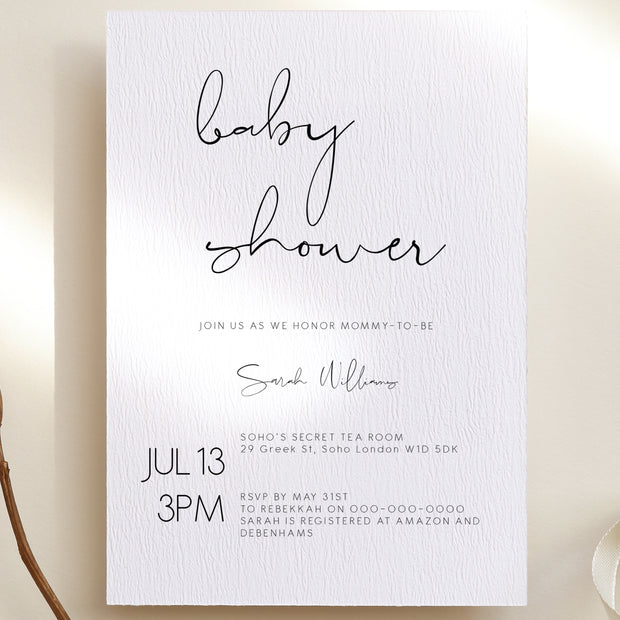 baby
shower
JOIN US AS WE HONOR MOMMY-TO-BE
Sarah Williams
JUL 13
3PM
SOHO'S SECRET TEA ROOM
29 Greek St, Soho London W1D 5DK
RSVP BY MAY 31ST
TO REBEKKAH ON 000-000-0000
SARAH IS REGISTERED AT AMAZON AND
DEBENHAMS